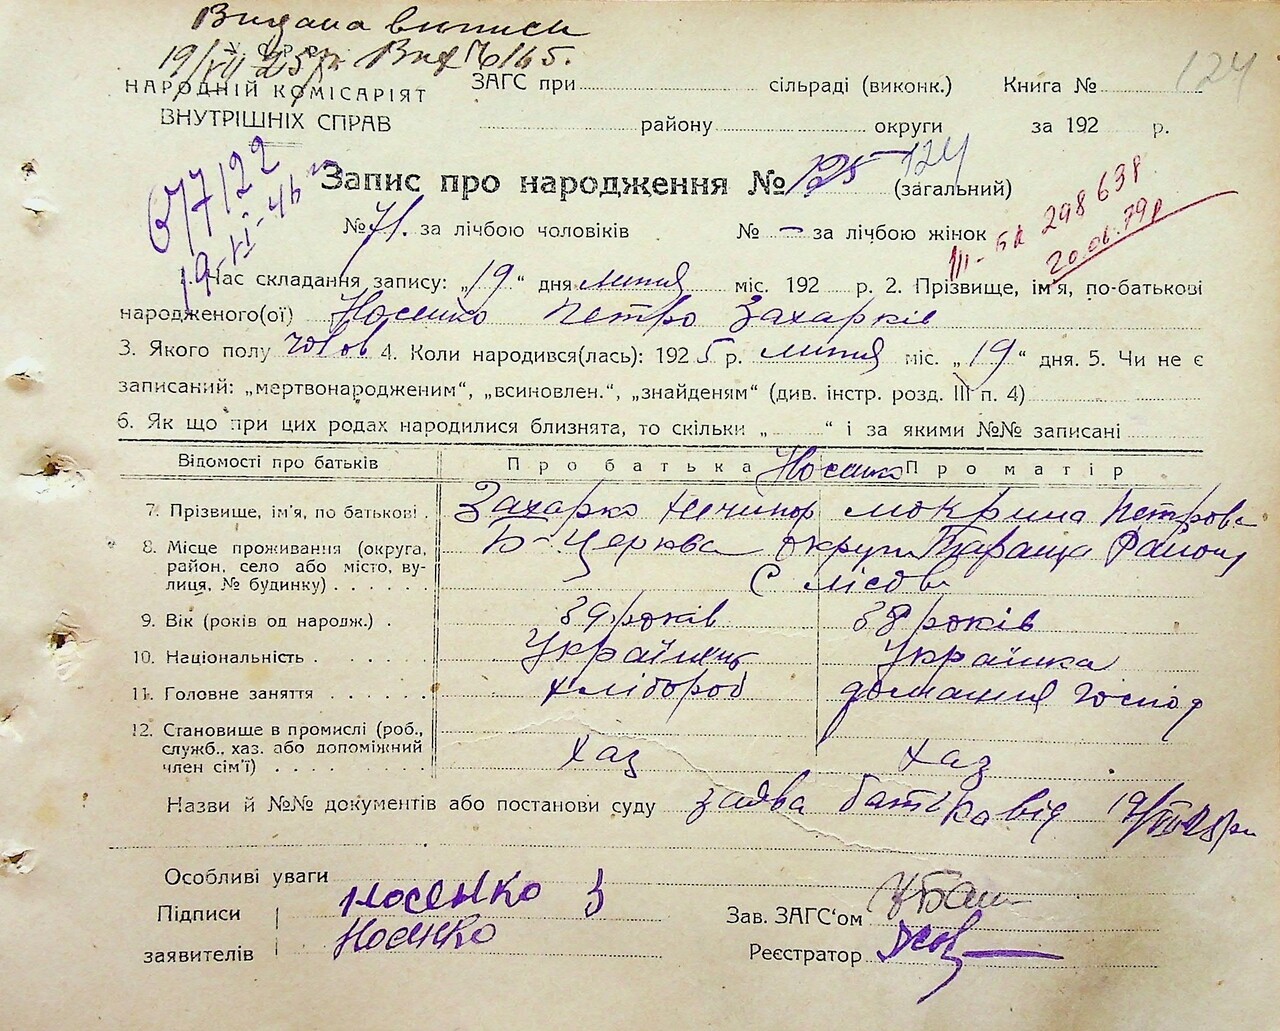 Видана выписи
19/VII 25 р. Вих № 6165.
124
НАРОДНІЙ КОМІСАРІЯТ ЗАГС при сільраді (виконк.) Книга №
ВНУТРІШНІХ СПРАВ району округи за 192 р.
677122
19-XI-46
Запис про народження № 125 124 (загальний)
III-БК 298638
20.06.79р
№ 71. за лічбою чоловіків № – за лічбою жінок
Час складання запису: „19“ дня липня міс. 192 р. 2. Прізвище, ім'я, по-батькові
народженого(ої) Носенко Петро Захарків
3. Якого полу чолов 4. Коли народився(лась): 1925 р. липня міс. „19“ дня. 5. Чи не є
записаний: „мертвонародженим“, „всиновлен.“, „знайденям“ (див. інстр. розд. III п. 4)
6. Як що при цих родах народилися близнята, то скільки „ “ і за якими №№ записані
Відомості про батьків Про батька Носенко Про матір
7. Прізвище, ім'я, по батькові . Захарко Нечипор Мокрина Петрова
8. Місце проживання (округа, Б-Церква округи Тараща Району
район, село або місто, ву-
лиця, № будинку) . . . . . . С Лісові
9. Вік (років од народж.) . 39 років 38 років
10. Національність . . . . . . Українець Українка
11. Головне заняття . . . . . . хлібороб домашня господ
12. Становище в промислі (роб.,
служб., хаз. або допоміжний
член сім'ї) . . . . . . . . . хаз хаз
Назви й №№ документів або постанови суду заява батька від 19/VII-25 р
Особливі уваги
Підписи Носенко З Зав. ЗАГС'ом
заявителів Носенко Реєстратор